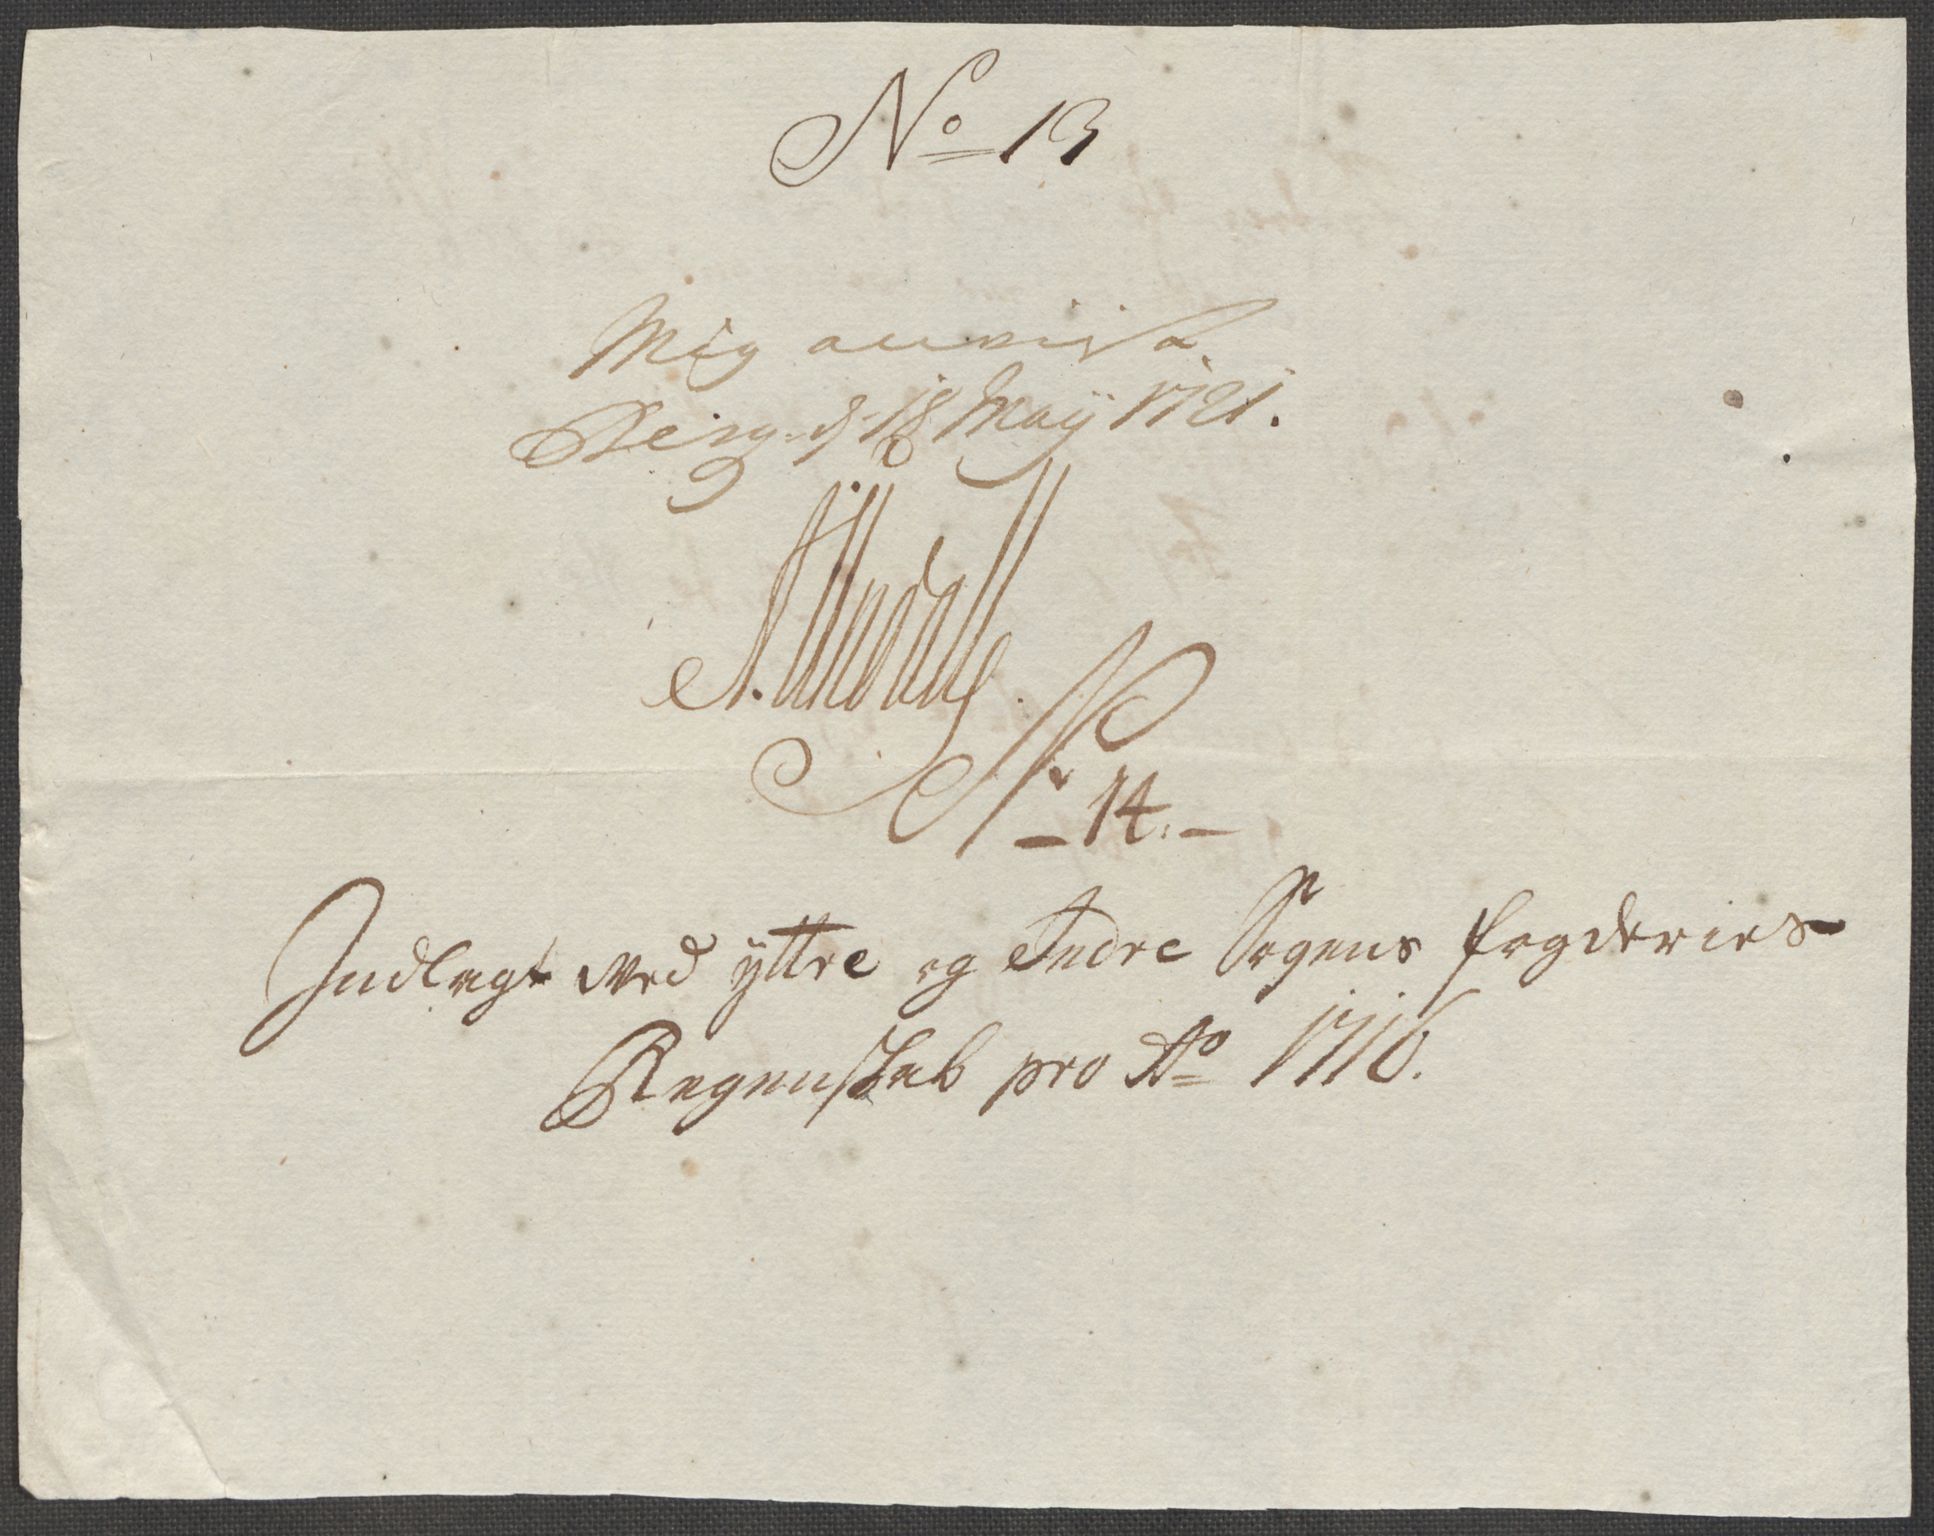 No 13
Mig anvist
Berg. d. 18 Maij 1721.
No 14.
Indlagt ved ÿttre og Indre Sogens fogderies
Regenskab pro Ao 1716.